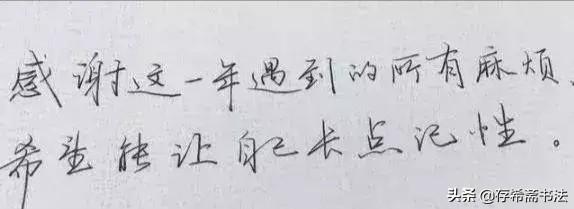 感谢这一年遇到的所有麻烦、
希望能让自己长点记性。
头条@存希斋书法